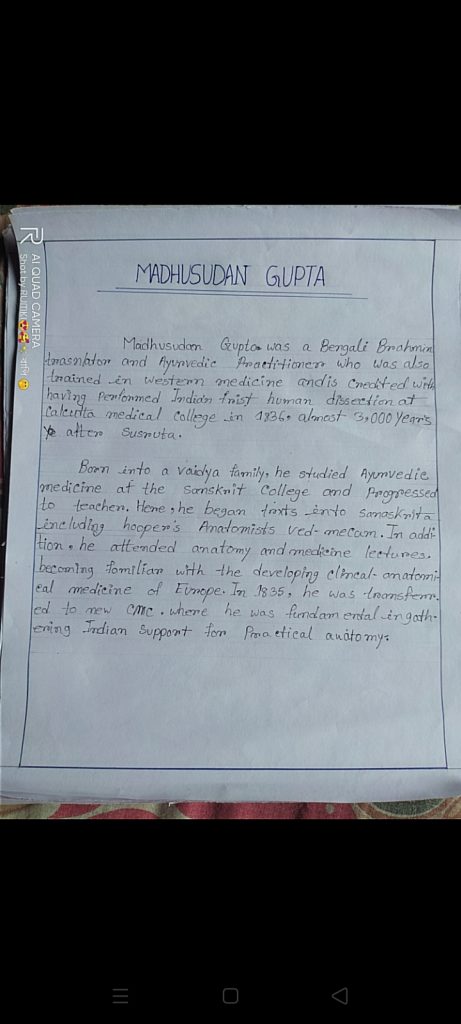 MADHUSUDAN GUPTA
Madhusudan Gupta was a Bengali Brahmin
trasnlator and Ayurvedic Practitioner who was also
trained in western medicine andis credited with
having performed Indian frist human dissection at
Calcutta medical college in 1836, almost 3,000 years
after Susruta.
Born into a vaidya family, he studied Ayurvedic
medicine at the Sanskrit College and Progressed
to teacher. Here, he began txts into sanaskrita
including hooper's Anatomists Ved-mecum. In addi
tion, he attended anatomy and medicine lectures.
becoming familian with the developing clincal-anatomi
cal medicine of Europe. In 1835, he was transferr
ed to new CMC. where he was fundamental in gath-
ering Indian Support for Practical anatomy.
AI QUAD CAMERA
Shot by RUTIK